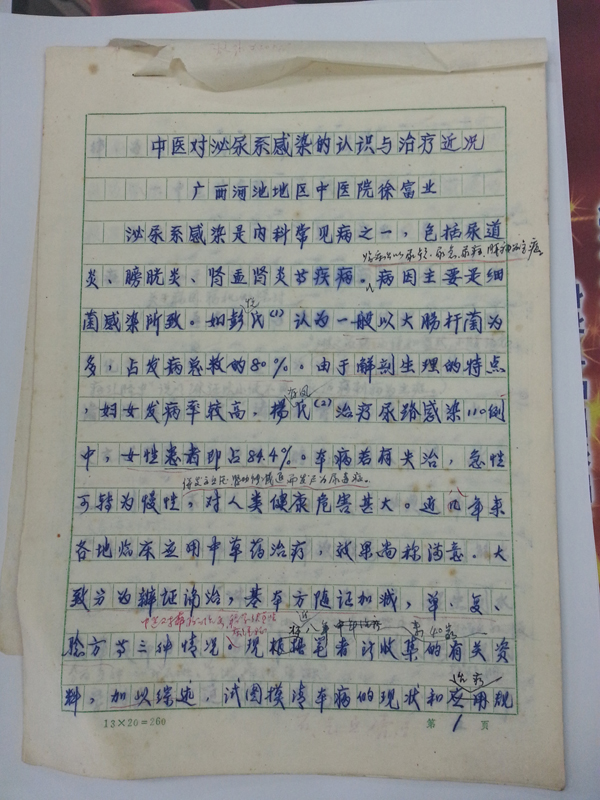 中医对泌尿系感染的认识与治疗近况
广西河池地区中医院徐富业
泌尿系感染是内科常见病之一，包括尿道
炎、膀胱炎、肾盂肾炎等疾病。病因主要是细
菌感染所致。如彭氏(1)认为一般以大肠杆菌为
多，占发病系数的80%。由于解剖生理的特点
，妇女发病率较高，杨氏(2)治疗尿路感染110例
中，女性患者即占84.4%。本病若有失治，急性
可转为慢性，对人类健康危害甚大。近八年来
各地临床应用中草药治疗，效果尚称满意。大
致分为辩证论治，基本方随证加减，单、复、
验方等三种情况。现根据笔者计收集的有关资
料，加以综述，试图摸清本病的现状和治疗应用规
13×20=260
第1页